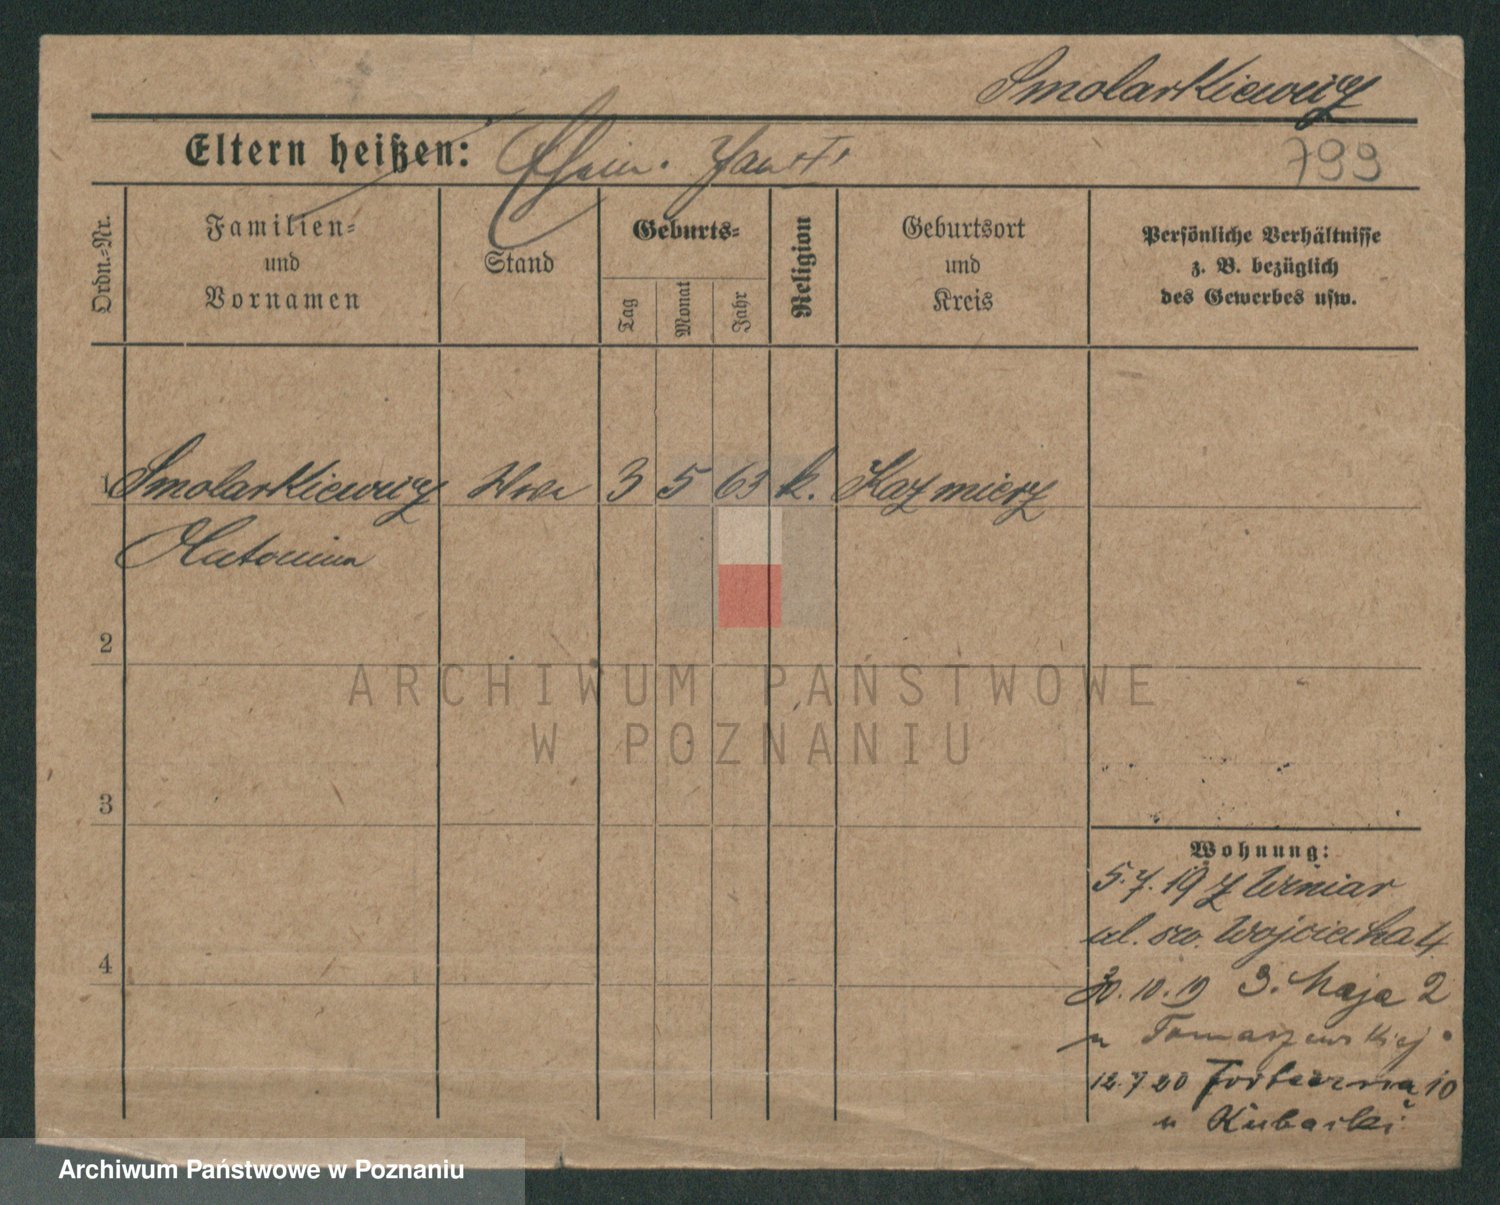 Smolarkiewicz
Eltern heißen:
799
Ordn.-Nr.
Familien-
und
Vornamen
Stand
Geburts-
Tag
Monat
Jahr
Religion
Geburtsort
und
Kreis
Persönliche Verhältnisse
z. B. bezüglich
des Gewerbes usw.
1 Smolarkiewicz Wwe 3 5 63 k. Kazmierz
Antonina
2
3
4
ARCHIWUM PAŃSTWOWE
W POZNANIU
Wohnung:
5.7.19 z Winiar
ul. sw. Wojciecha 4
30.10.19 3. Maja 2
u Tomaszewskiej
12.7.20 Forteczna 10
u Kubacki
Archiwum Państwowe w Poznaniu